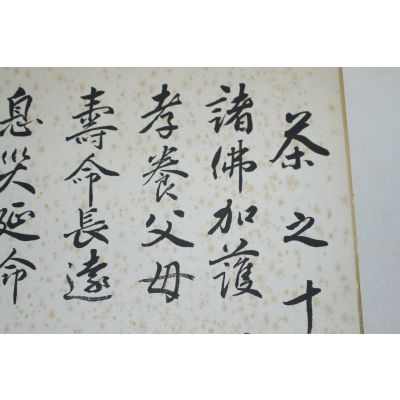 茶之十
諸佛加護
孝養父母
壽命長遠
息災延命